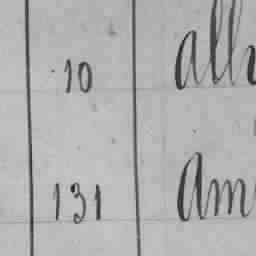 10 all
131 Am